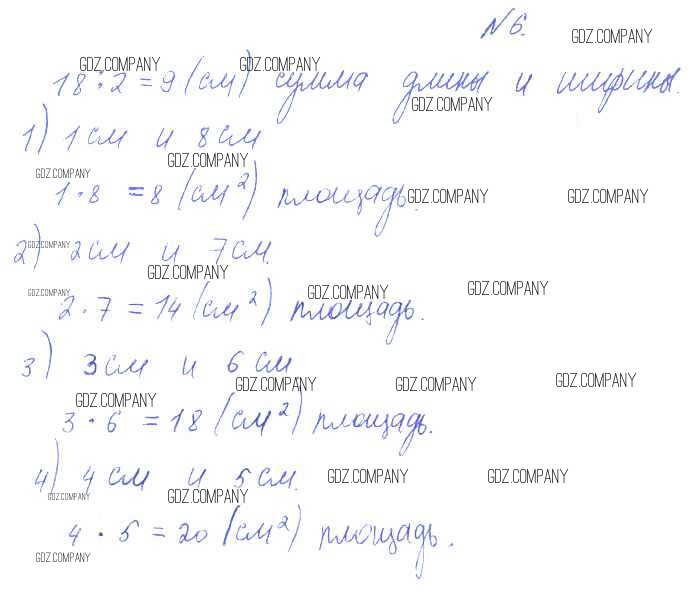 №6.
GDZ.COMPANY
GDZ.COMPANY GDZ.COMPANY
18:2=9 (см) сумма длины и ширины.
GDZ.COMPANY
1) 1 см и 8 см
GDZ.COMPANY
GDZ.COMPANY
1·8 =8 (см²) площадь.
GDZ.COMPANY GDZ.COMPANY
2) 2 см и 7 см.
GDZ.COMPANY
GDZ.COMPANY
GDZ.COMPANY GDZ.COMPANY GDZ.COMPANY
2·7=14 (см²) площадь.
3) 3 см и 6 см
GDZ.COMPANY GDZ.COMPANY GDZ.COMPANY
GDZ.COMPANY
3·6 =18 (см²) площадь.
4) 4 см и 5 см.
GDZ.COMPANY GDZ.COMPANY
GDZ.COMPANY GDZ.COMPANY
4·5=20 (см²) площадь.
GDZ.COMPANY